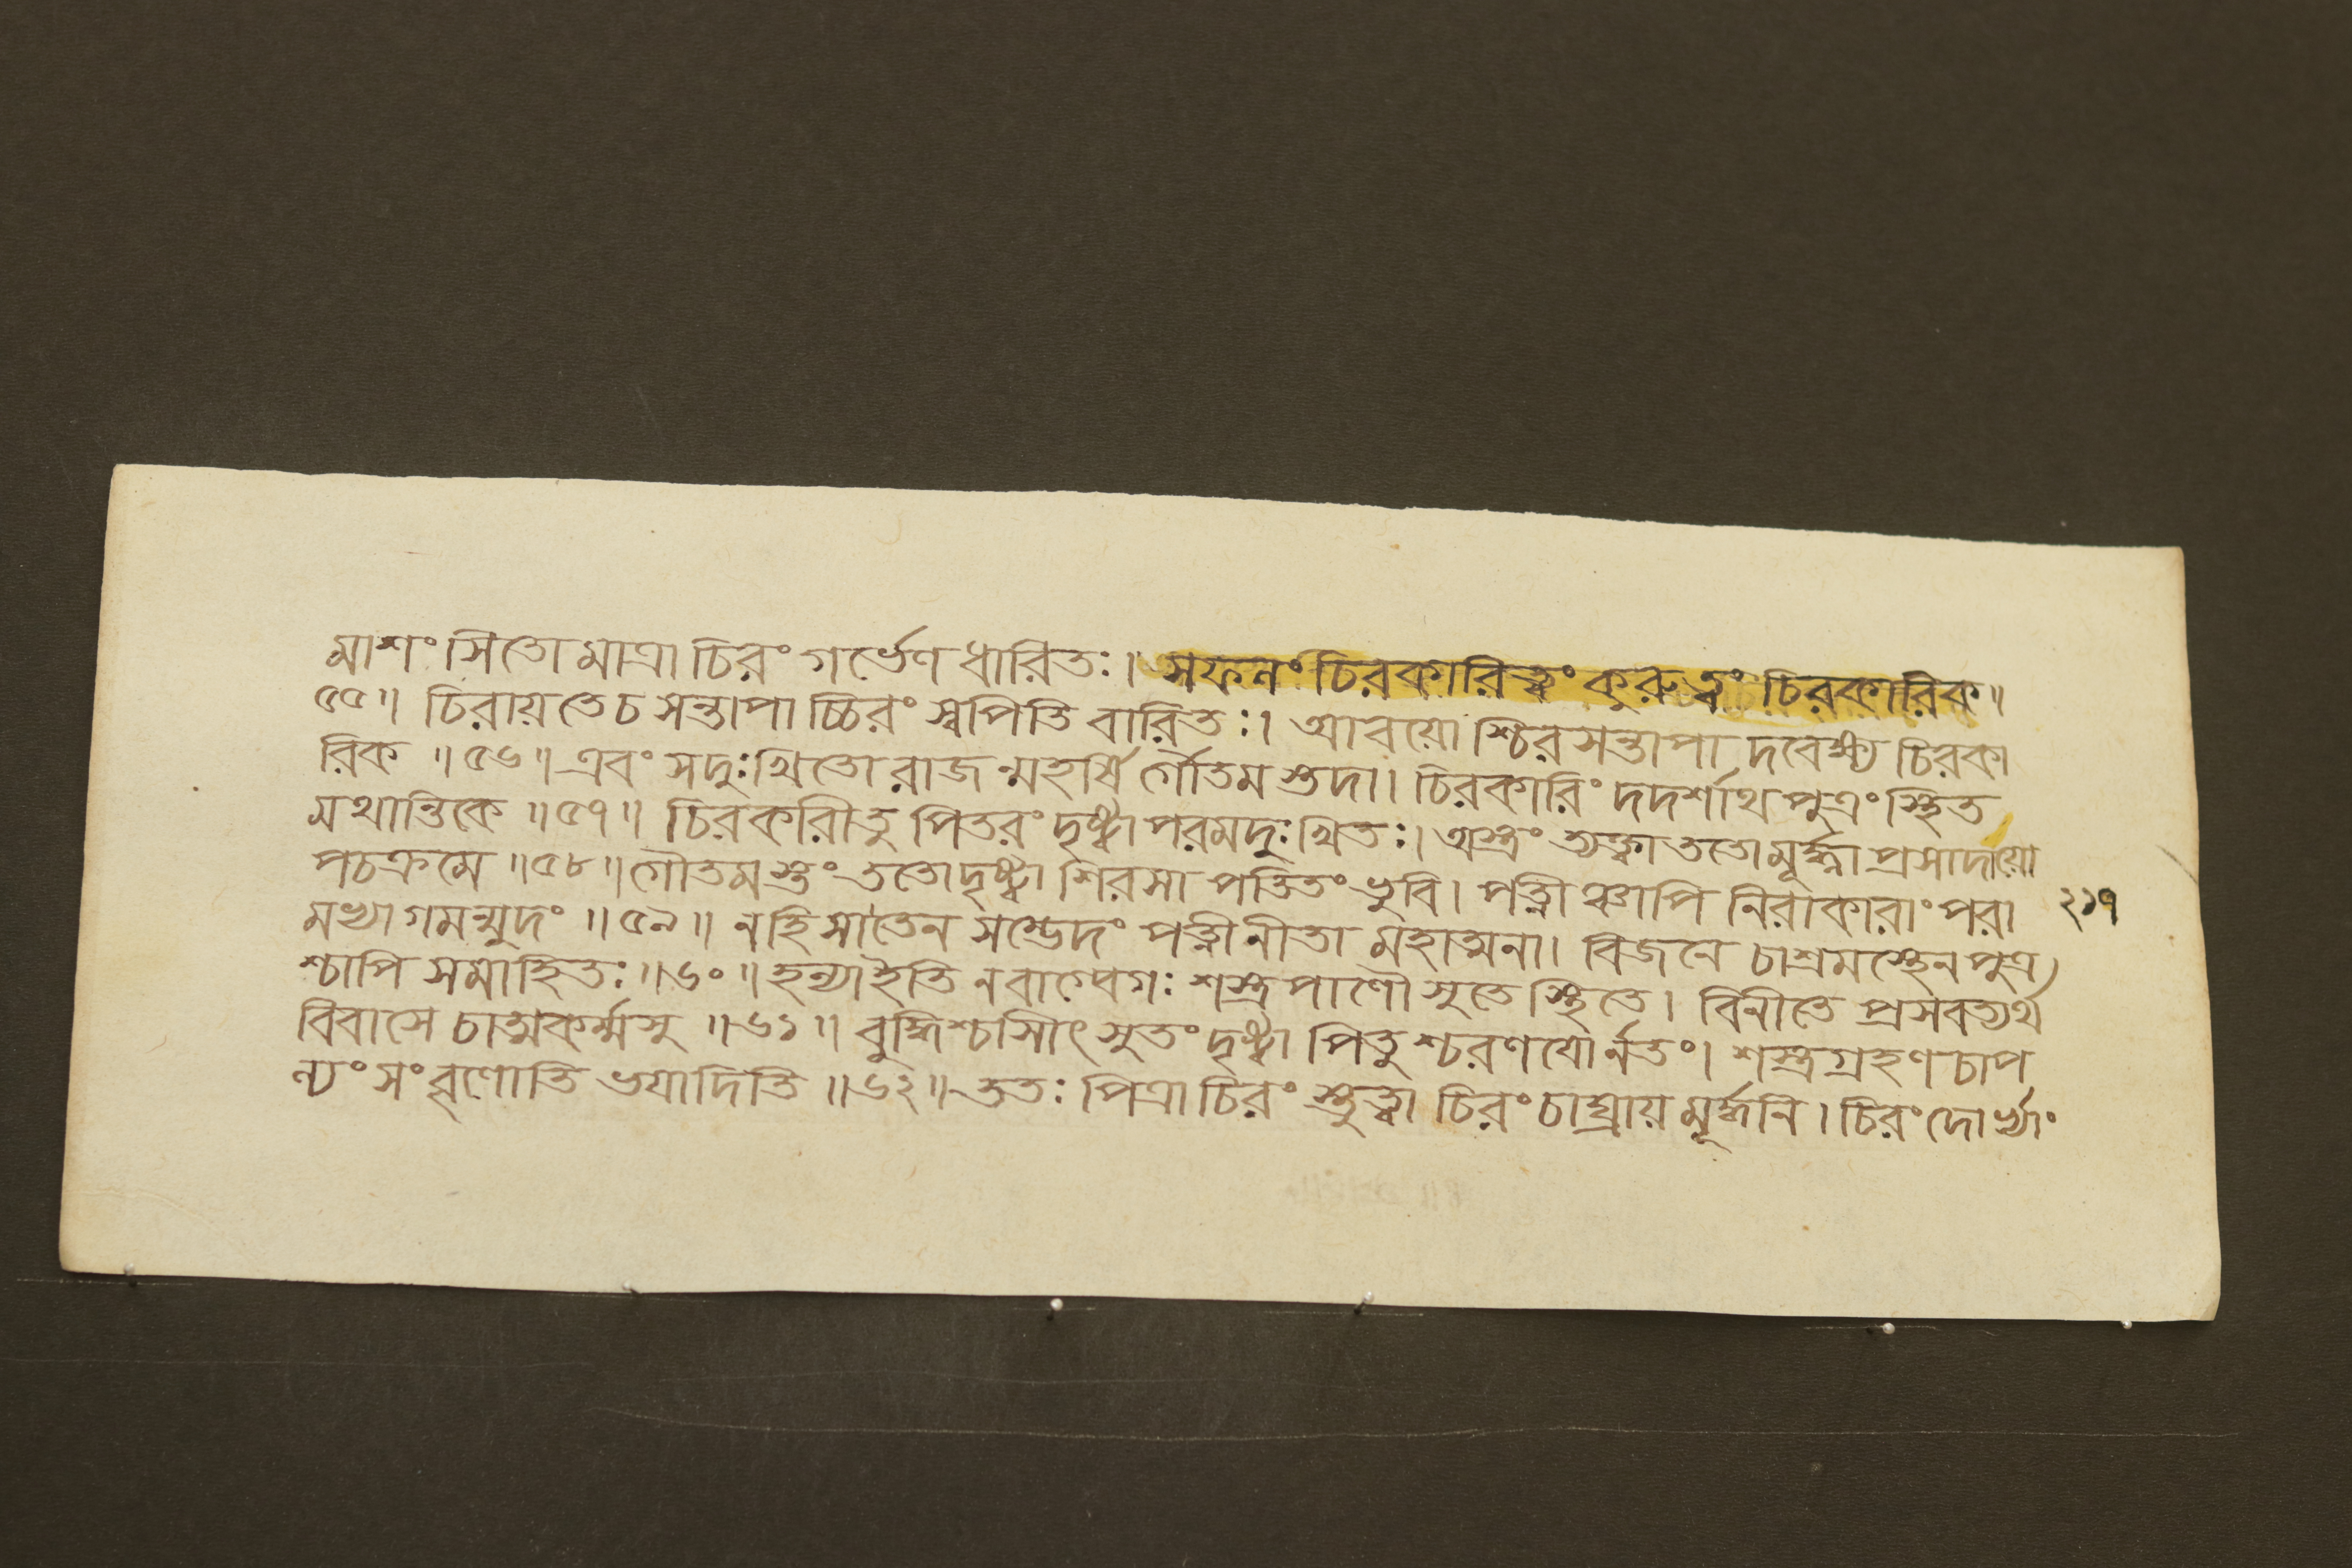 মাশংসিতো মাত্রা চিরং গর্ভেণ ধারিতঃ। সফলং চিরকারিত্ত্বং কুরুত্বং চিরকারিক॥
৫৫॥ চিরায়তেচ সন্তাপাচ্চিরং স্বপিতি বারিতঃ। আবয়োশ্চিরসন্তাপাদবেক্ষ্য চিরকা
রিক ॥৫৬॥ এবং সদুঃখিতো রাজন্মহর্ষির্গৌতমস্তদা। চিরকারিং দদর্শাথ পুত্রং স্থিত
মথান্তিকে ॥৫৭॥ চিরকরীতু পিতরং দৃষ্ট্বা পরমদুঃখিতঃ। অস্ত্রং ত্যক্ত্বা ততো মূর্দ্ধ্না প্রসাদায়ো
পচক্রমে ॥৫৮॥ গৌতমস্তুং ততো দৃষ্ট্বা শিরসা পতিতং ভুবি। পত্নীঞ্চাপি নিরাকারাং পরা
মভ্যাগমন্মুদং ॥৫৯॥ নহি সাতেন সম্ভেদং পত্নীনীতা মহাত্মনা। বিজনে চাশ্রমস্থেন পুত্র
শ্চাপি সমাহিতঃ ॥৬০॥ হন্যাইতি নবাগ্বেগঃ শস্ত্রপাণৌ সুতে স্থিতে। বিনীতে প্রসবত্যর্থ
বিবাসে চাত্মকর্ম্মসু ॥৬১॥ বুদ্ধিশ্চাসীৎ সুতং দৃষ্ট্বা পিতুশ্চরণযোর্নতং। শস্ত্রগ্রহণচাপ
ল্যং সংবৃণোতি ভয়াদিতি ॥৬২॥ ততঃ পিত্রা চিরং শ্রুত্বা চিরং চাঘ্রায় মূর্দ্ধনি। চিরং দোর্ভ্যাং
২১৭